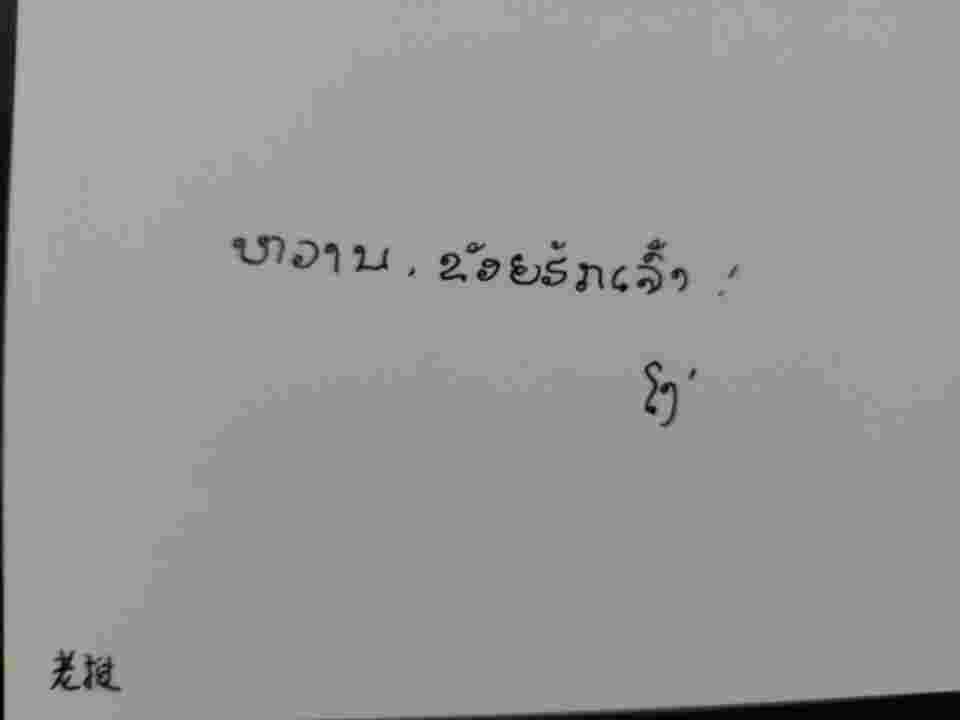 ຫາວານ, ຂ້ອຍຮັກເຈົ້າ!
ໂງ່
老挝